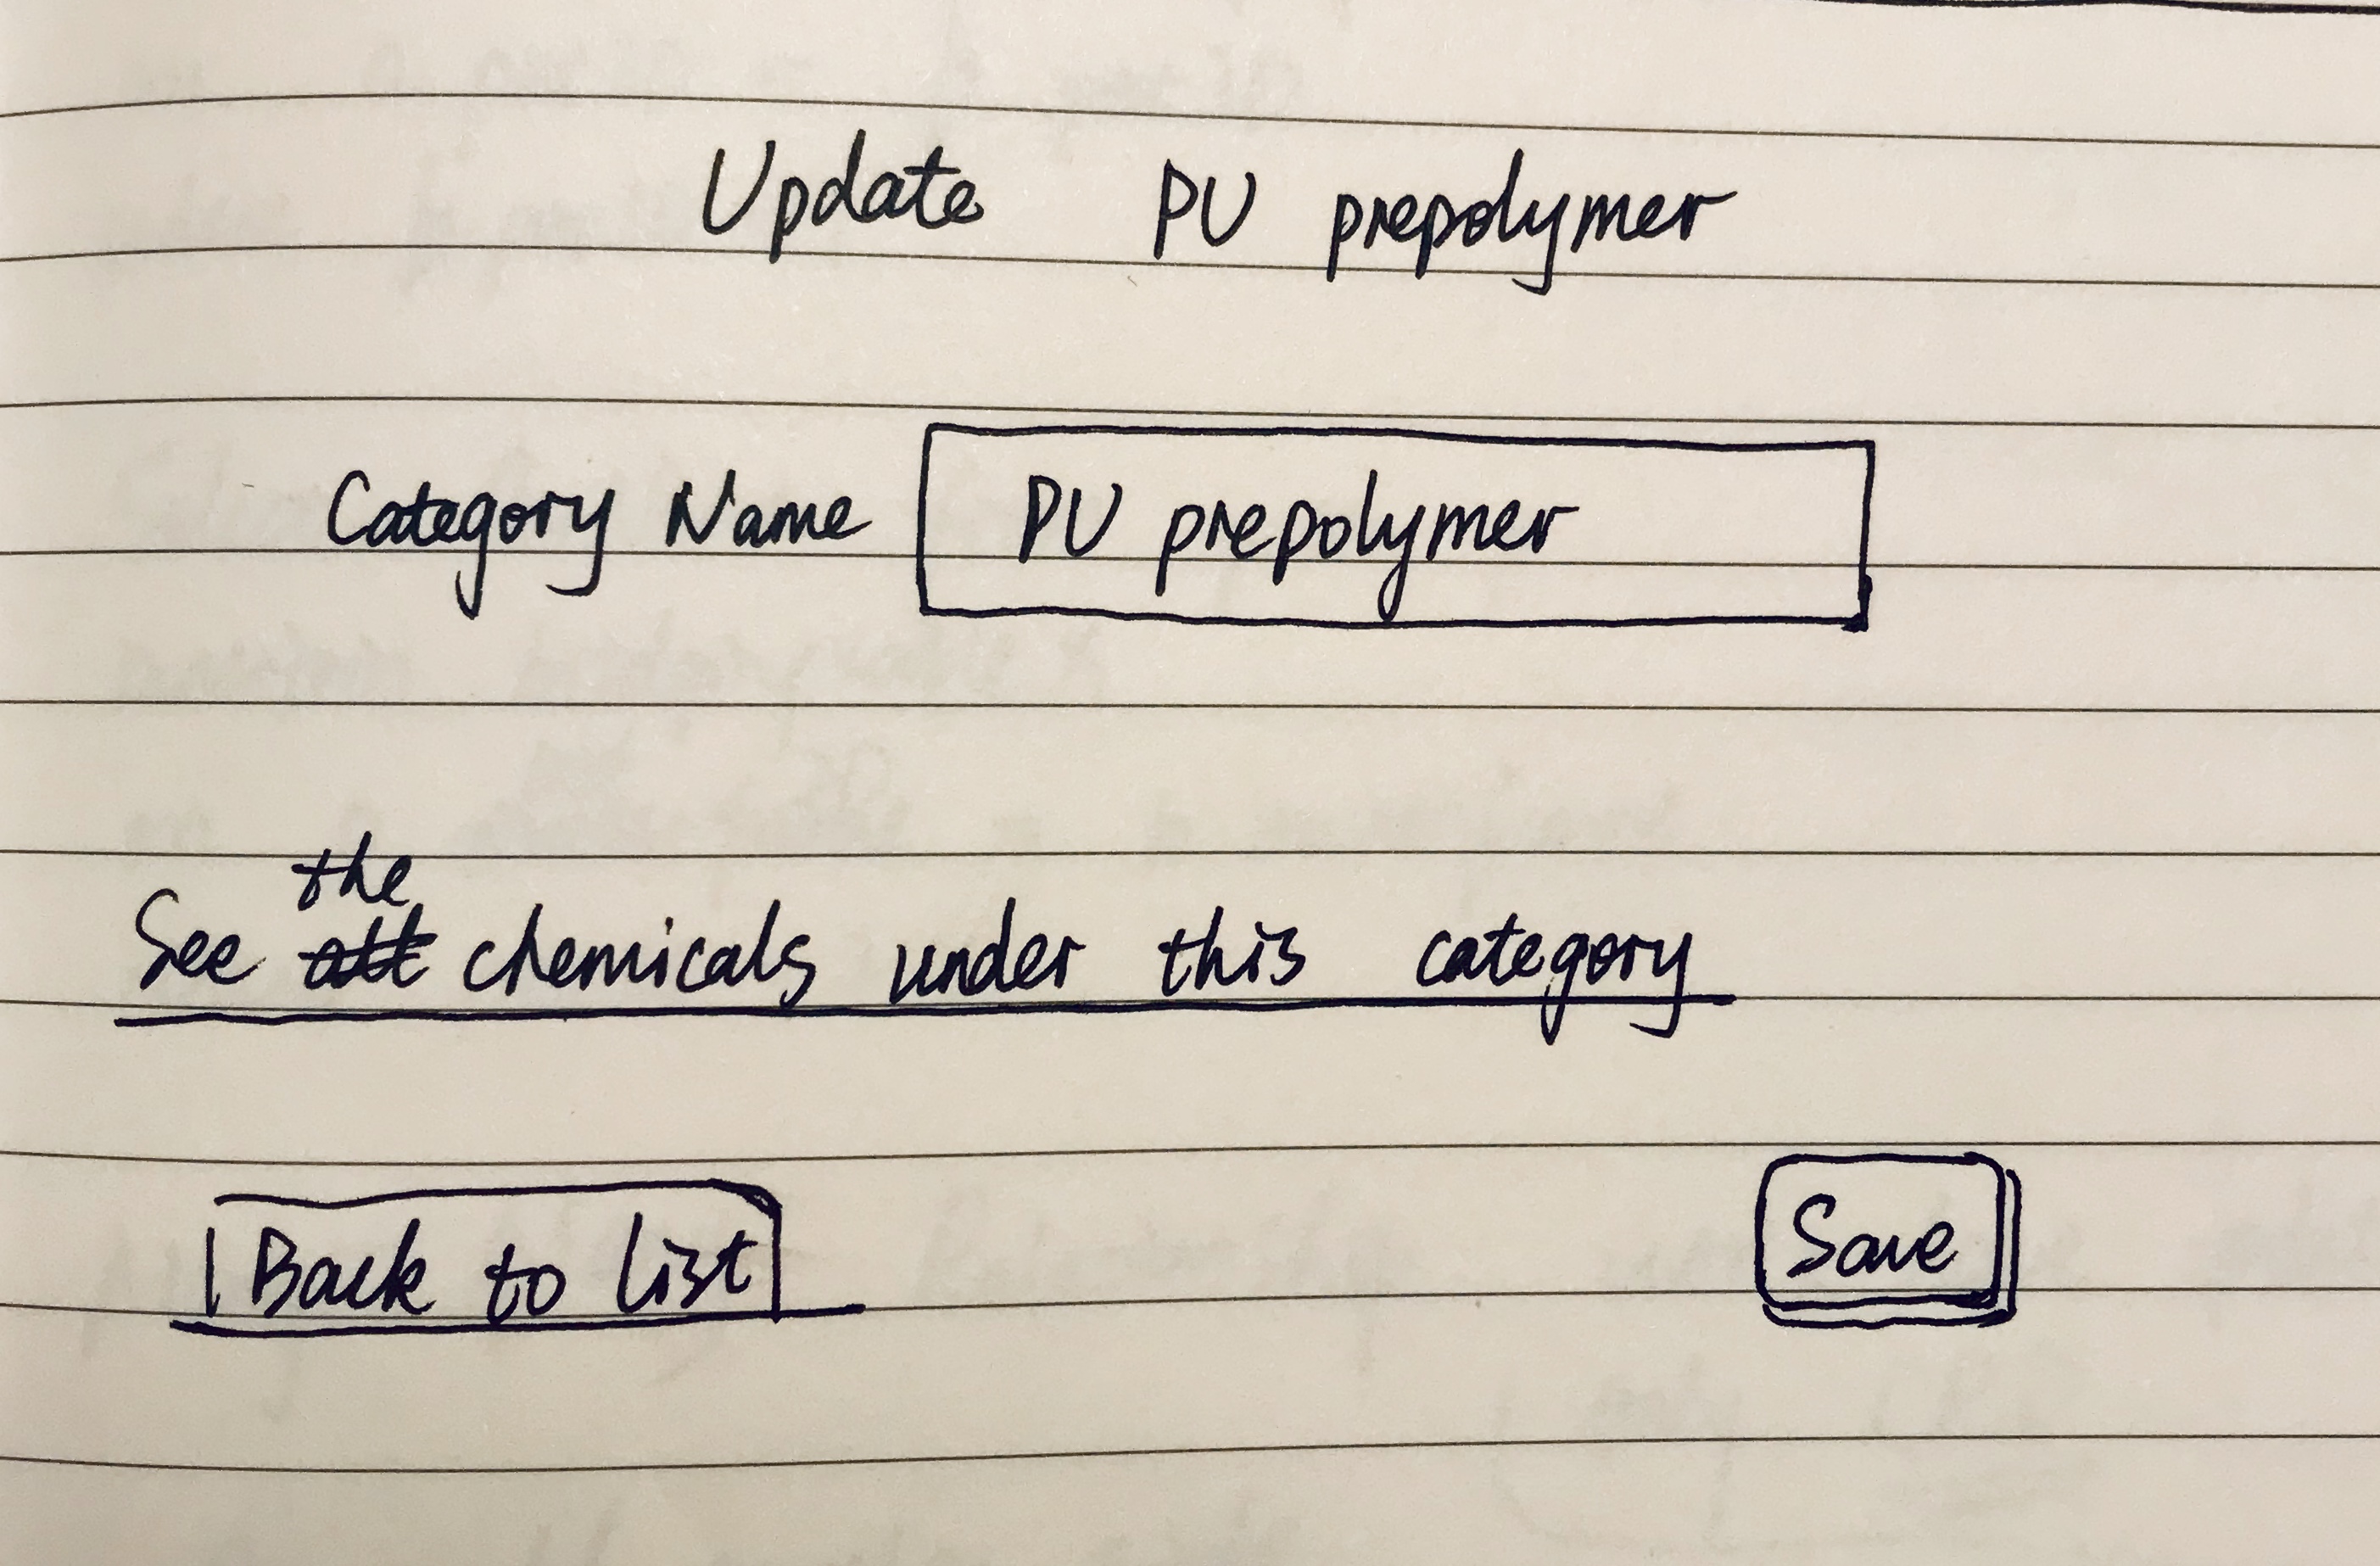 Update PU prepolymer
Category Name PU prepolymer
See the chemicals under this category
Back to list
Save